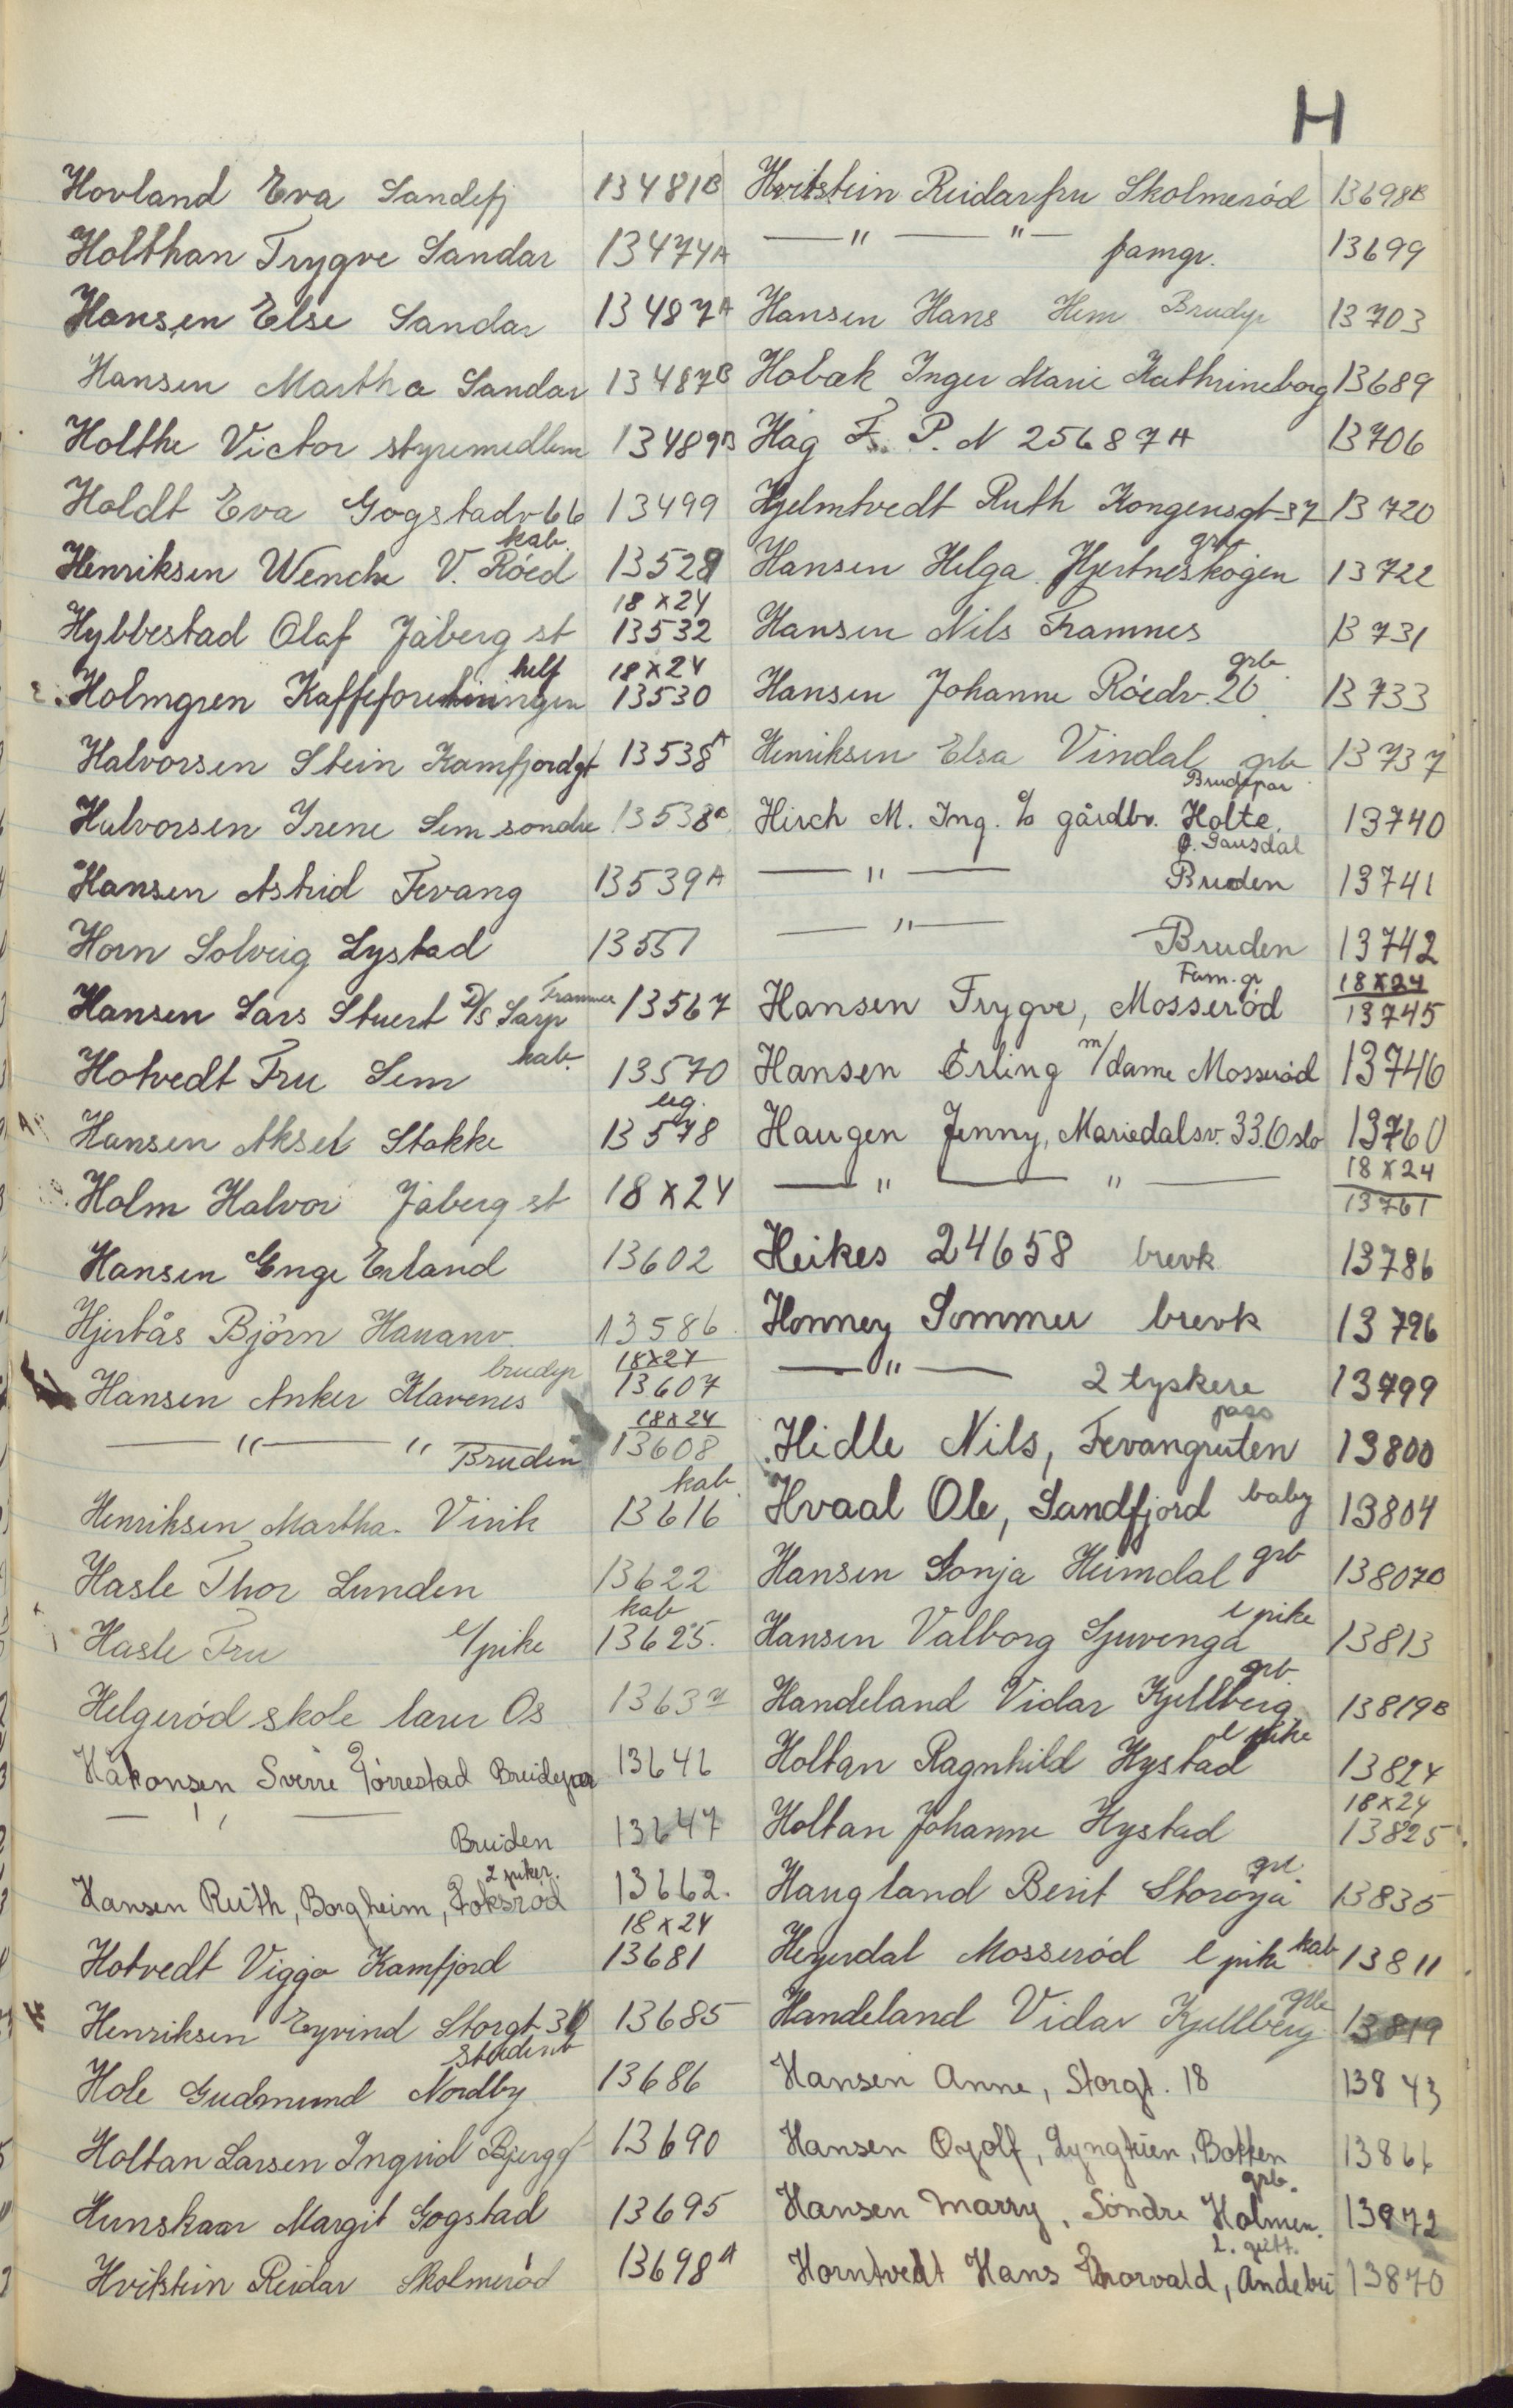 H
Hovland Eva Sandefj 13481B
Holthan Trygve Sandar 13474A
Hansen Else Sandar 13487A
Hansen Martha Sandar 13487B
Holthe Victor styremedlem 13489B
Holdt Eva Gogstadv 66 13499
Henriksen Wenche V. Röed kab. 13528
Hybbestad Olaf Jåberg st 18x24 13532
Holmgren Kaffeforretningen helf 18x24 13530
Halvorsen Stein Kamfjordgt 13538A
Halvorsen Irene Sem søndre 13538B
Hansen Astrid Fevang 13539A
Horn Solveig Lystad 13551
Hansen Lars Stuert D/S Sarp Framnes 13567
Hotvedt Fru Sem kab. 13570
Hansen Aksel Stokke leg. 13578
Holm Halvor Jåberg st 18x24
Hansen Enge Erland 13602
Hjertås Björn Hauanv. 13586
Hansen Anker Klavenes brudep 18x24 13607
— " — " Bruden 18x24 13608
Henriksen Martha Virik kab. 13616
Hasle Thor Lunden 13622
Hasle Fru l/pike kab 13625.
Helgeröd skole lærer Os 13637
Håkonsen Sverre Törrestad Brudepar 13646
— " — Bruden 13647
Hansen Ruth, Borgheim, Foksröd 2 piker. 13662.
Hotvedt Viggo Kamfjord 18x24 13681
Henriksen Eyvind Storgt 36 13685
Hole Gudmund Nordby student 13686
Holtan Larsen Ingrid Bjergg 13690
Hunskaar Margit Gogstad 13695
Hvitstein Reidar Skolmeröd 13698A
Hvitstein Reidar fru Skolmeröd 13698B
— " — " — famgr. 13699
Hansen Hans Hem Brudep 13703
Hobæk Inger Marie Kathrineborg 13689
Håg F. P. N 25687A 13706
Hjelmtvedt Ruth Kongensgt 37 13720
Hansen Helga Hjertneskogen grb 13722
Hansen Nils Framnes 13731
Hansen Johanne Röedv. 20 grb. 13733
Henriksen Elsa Vindal grb 13737
Hirch M. Ing. c/o gårdbr. Holte, Ö. Gausdal Brudepar 13740
— " — Bruden 13741
— " — Bruden 13742
Hansen Trygve, Mosseröd Fam. gr 18x24 13745
Hansen Erling m/dame Mosseröd 13746
Haugen Jenny, Mariedalsv. 33. Oslo 13760
— " — " — 18x24 13761
Heikes 24658 brevk 13786
Honney Sommer brevk 13796
— " — 2 tyskere 13799
Hidle Nils, Fevangruten pass 13800
Hvaal Ole, Sandfjord baby 13804
Hansen Sonja Heimdal grb 13807B
Hansen Valborg Sjuvenga l pike 13813
Handeland Vidar Kjellberg grb. 13819B
Holtan Ragnhild Hystad l pike 13824
Holtan Johanne Hystad 18x24 13825
Haugland Berit Storøya grb. 13835
Heyerdal Mosseröd l pike kab 13811
Handeland Vidar Kjellberg grb 13819
Hansen Anne, Storgt. 18 13843
Hansen Oyolf, Lyngtuen, Botten 13866
Hansen Marry, Søndre Holmen. grb. 13872
Horntvedt Hans Thorvald, Andebu l. gutt. 13870